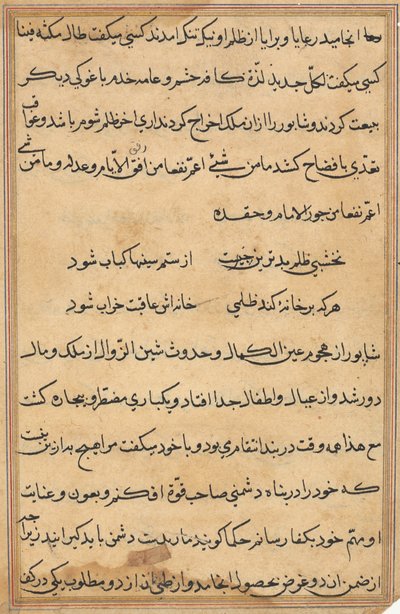 انجامید رعایا و برایا از ظلم او بتنک امدند کسی میکفت طال مکثه فینا
کسی میکفت لکل جدید لذة کافه حشم و عامه خدم با غوکی دیکر
بیعت کردند و شابور را ازان ملک اخراج کردند اری اخر ظلم شوم باشد و عواقب
تعدی بافضاح کشد ما من شیٔ اعم نفعا من رفق الامام و عدله و ما من شیٔ
اعم نفعا من جور الامام و حقده
نخشبی ظلم بدترین چیزیست از ستم سینها کباب شود
هرکه بر خانهٔ کند ظلمی خانه اش عاقبت خراب شود
شابور از هجوم عین الکمال و حدوث شین الزوال از ملک و مال
دور شد و از عیال و اطفال جدا افتاد و یکباری مضطر و بیچاره کشت
مع هذا همه وقت در بند انتقام می بود و با خود میکفت مرا هیچ به ازین نیست
که خود را در پناه دشمنی صاحب قوة افکنم و بعون و عنایت
او مهم خود بکفا رسانم حکما کویند مار بدست دشمن باید کیرانید زیرا چه
از ضمن ان دو غرض بحصول انجامد و از طی ان از دو مطلوب یکی در کف